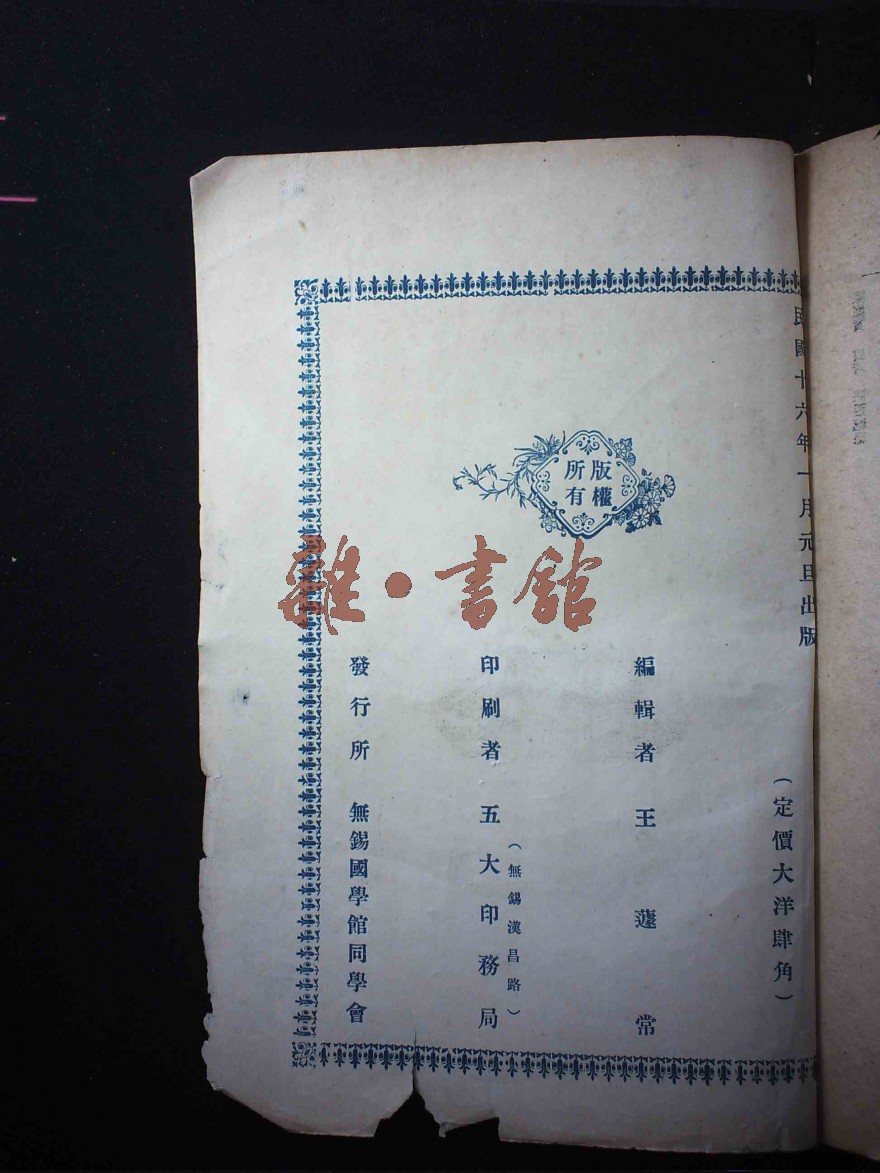 民國十六年一月元旦出版
(定價大洋肆角)
版權
所有
編輯者 王蘧常
(無錫漢昌路)
印刷者 五大印務局
發行所 無錫國學館同學會
雜·書館